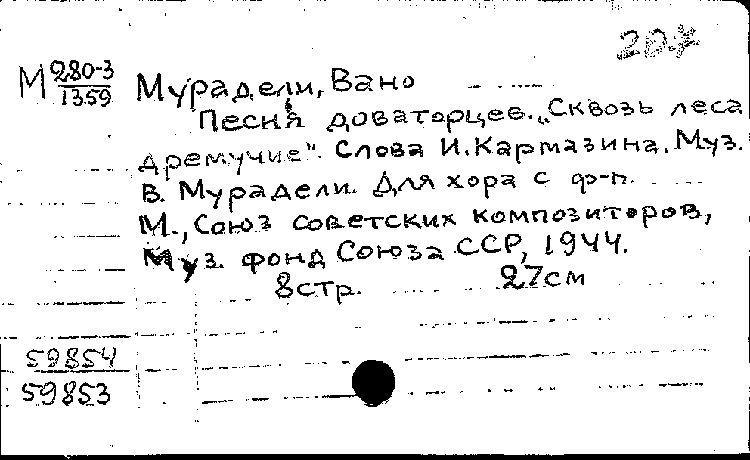 М 280-3
1359
Мурадели, Вано
Песня доваторцев. „Сквозь леса
дремучие". Слова И.Кармазина. Муз.
В. Мурадели. Для хора с ф-п.
М., Союз советских композиторов,
Муз. фонд Союза ССР, 1944.
8стр. 27см
59854
59853